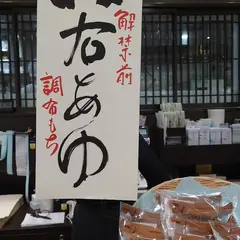 解禁前
若あゆ
調布もち